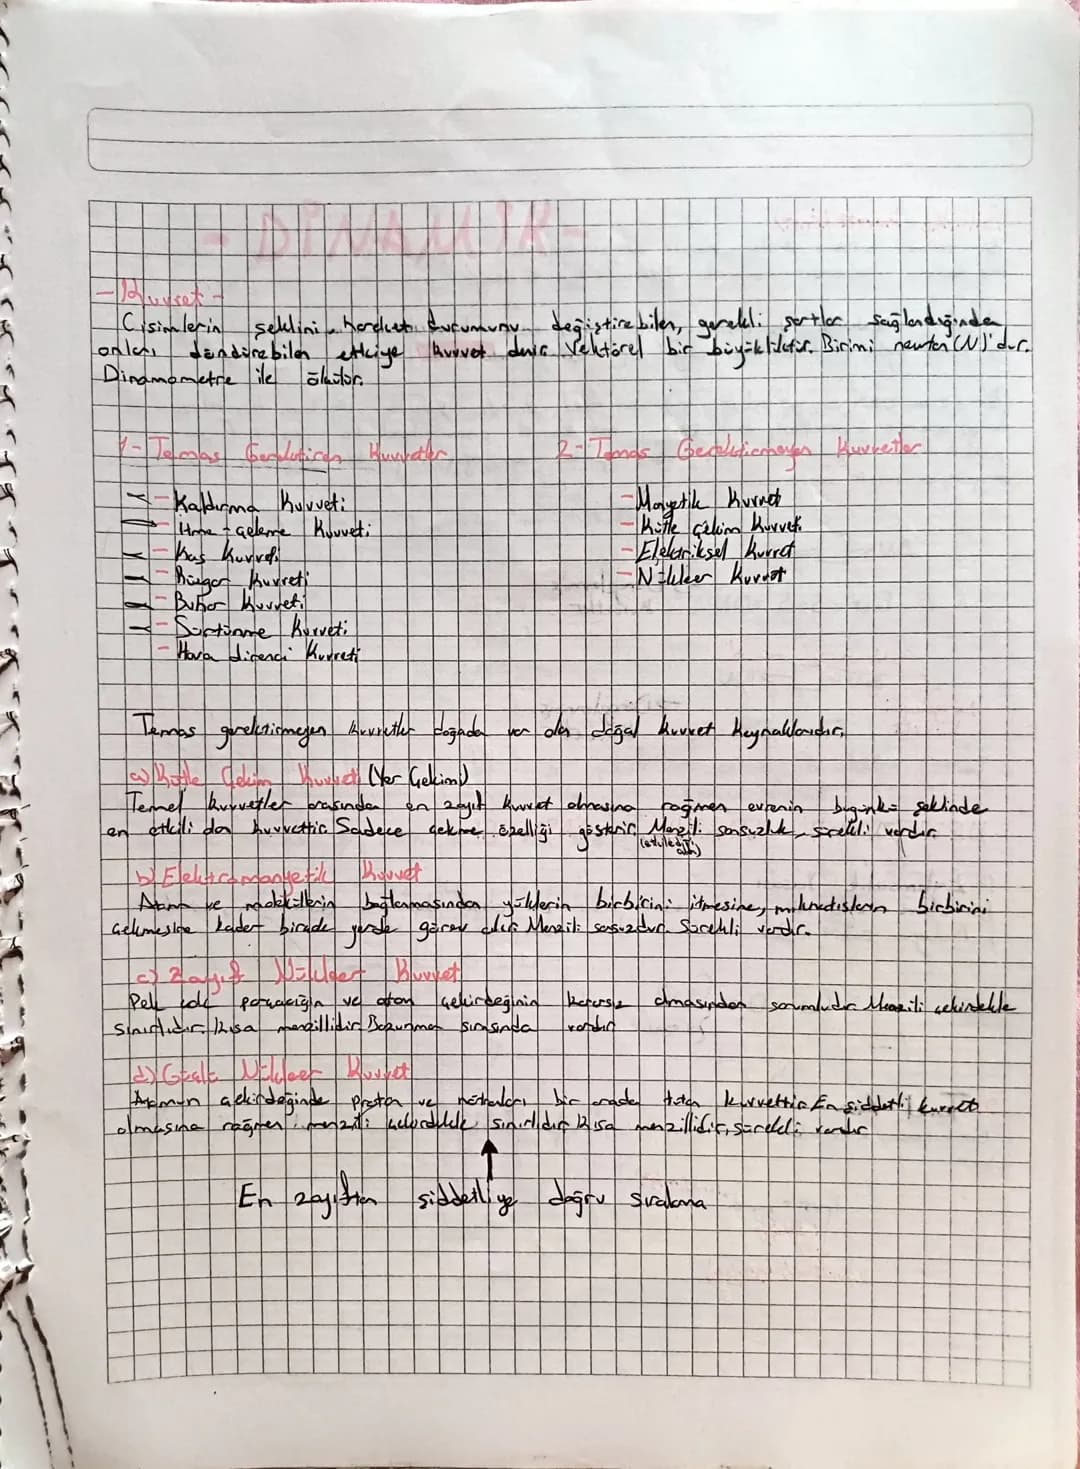 - DİNAMİK -
- Kuvvet -
Cisimlerin şeklini, hareket durumunu değiştirebilen, gerekli şartlar sağlandığında
onları döndürebilen etkiye kuvvet denir. Vektörel bir büyüklüktür. Birimi newton (N)'dur.
Dinamometre ile ölçülür.
1- Temas Gerektiren Kuvvetler
2- Temas Gerektirmeyen Kuvvetler
- Kaldırma Kuvveti
- İtme - çekme Kuvveti
- Kas Kuvveti
- Rüzgar Kuvveti
- Buhar Kuvveti
- Sürtünme Kuvveti
- Hava direnci Kuvveti
- Manyetik Kuvvet
- Kütle çekim Kuvveti
- Elektriksel Kuvvet
- Nükleer Kuvvet
Temas gerektirmeyen kuvvetler doğada var olan doğal kuvvet kaynaklarıdır.
a) Kütle Çekim Kuvveti (Yer Çekimi)
Temel kuvvetler arasında en zayıf kuvvet olmasına rağmen evrenin bugünkü şeklinde
en etkili olan kuvvettir. Sadece çekme özelliği gösterir. Menzili sonsuzluk, sürekli vardır.
(etkilediği alan)
b) Elektromanyetik Kuvvet
Atom ve moleküllerin bağlanmasından yüklerin birbirini itmesine, mıknatısların birbirini
çekmesine kadar birçok yerde görev alır. Menzili sonsuzdur. Sürekli vardır.
c) Zayıf Nükleer Kuvvet
Pek çok parçacığın ve atom çekirdeğinin kararsız olmasından sorumludur. Menzili çekirdekle
sınırlıdır. Kısa menzillidir. Bozunma sırasında vardır.
d) Güçlü Nükleer Kuvvet
Atomun çekirdeğinde proton ve nötronları bir arada tutan kuvvettir. En şiddetli kuvvet
olmasına rağmen menzili çekirdekle sınırlıdır. Kısa menzillidir, sürekli vardır
En zayıftan şiddetliye doğru sıralama